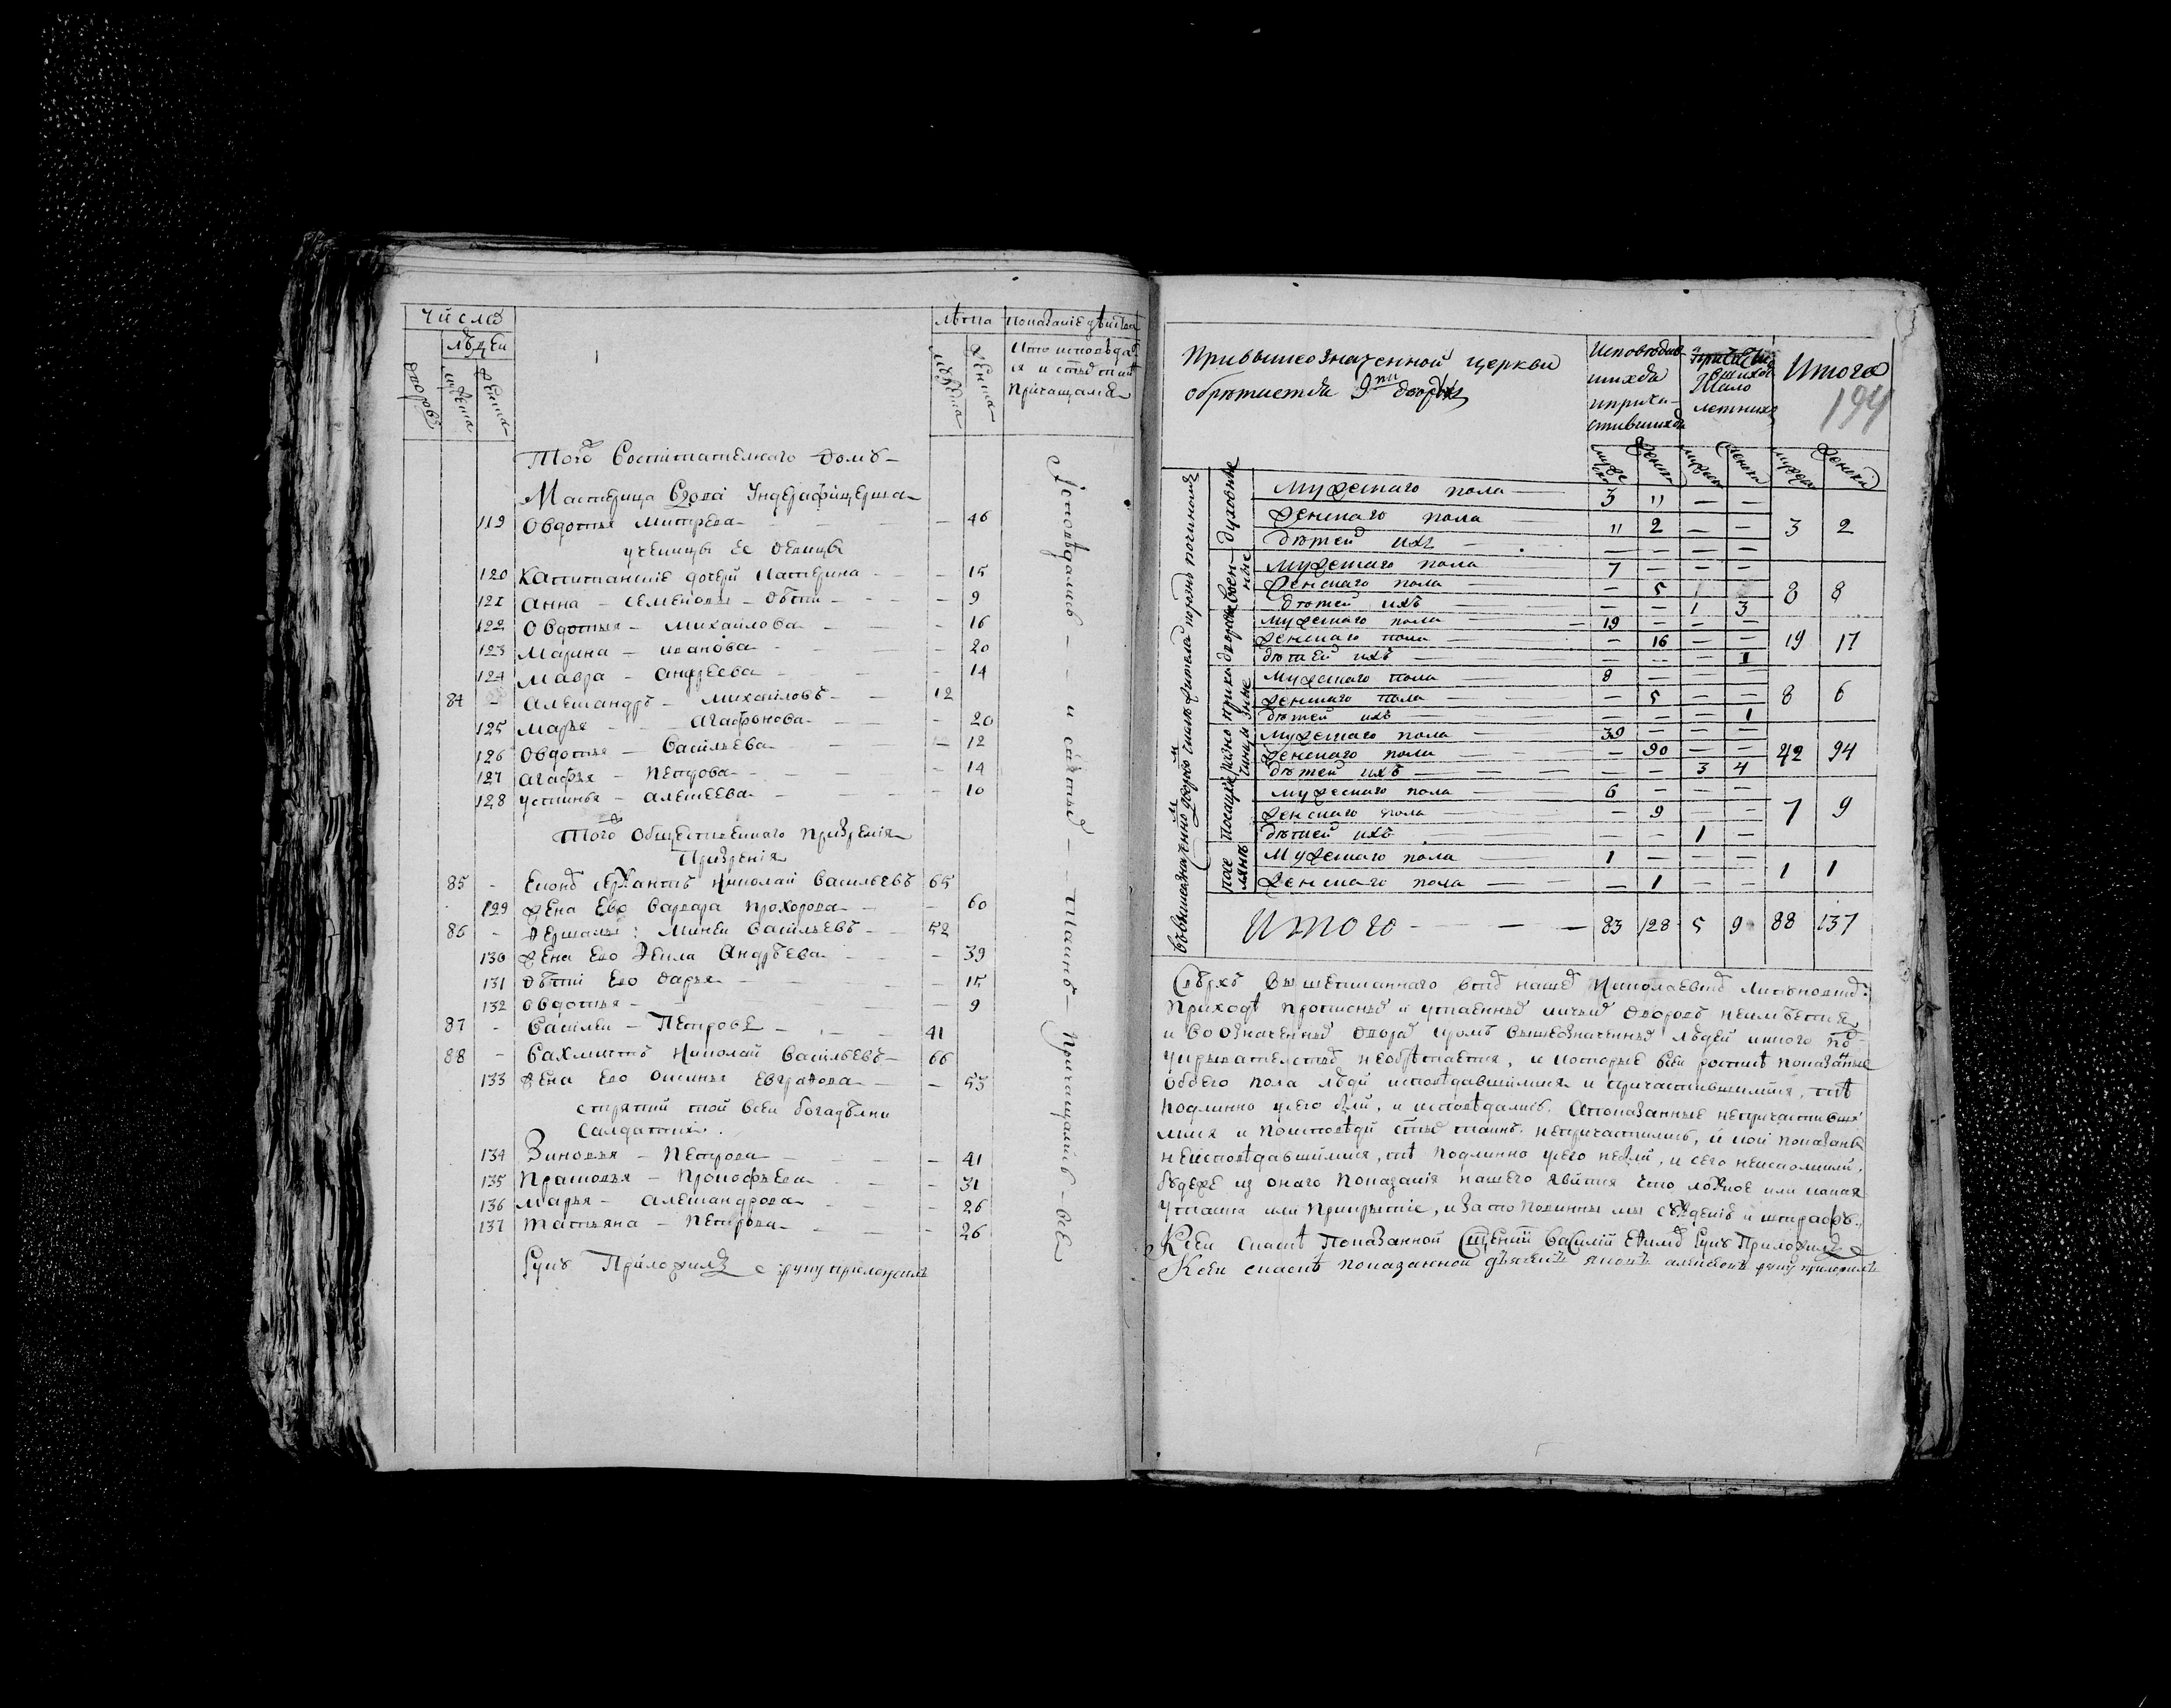 Числа
людей
дворовъ
мужеска
женска
лѣта
мужеска
женска
Показаніе дѣйства
кто исповѣдал
ся и святыхъ таинъ
причащался
Того Воспитателнаго Дому
Мастерица
119 Овдотья Митрева — 46
ученицы ее девицы
120 Капитанские дочери Катерина — 15
121 Анна — Семеновы — дѣти — 9
122 Овдотья — Михайлова — 16
123 Марина — Иванова — 20
124 Мавра — Андреева — 14
84 — Александръ — Михаиловъ — 12
125 Марья — Агафонова — 20
126 Овдотья — Васильева — 12
127 Агафья — Петрова — 14
128 Устинья — Алексеева — 10
Того Общественнаго Призрения
Призрения
85 — Сержантъ Николай Васильевъ 65
129 Жена Ево Варвара Прохорова — 60
86 — Васильевъ — 52
130 Жена Ево Андрѣева — 39
131 Дѣти Ево Дарья — 15
132 Овдотья — 9
87 — Василеи — Петровъ — 41
88 — Вахмистъ Николай Васильевъ — 66
133 Жена Ево Аксинья — 53
всей богадѣлни
Салдатки
134 Зиновья — Петрова — 41
135 Прасковья — Прокофьева — 31
136 Марья — Александрова — 26
137 Татьяна — Петрова — 26
Руку Приложилъ руку приложилъ
Исповѣдались — и святыхъ — Таинъ — Причащались — все
При вышеозначенной церкви
обрѣтается 9ти дворѣхъ
Исповедав-
шихся
и прича-
стившихся
Мало
летнихъ
Итого
194
мужеск женск мужеск женск мужеск женск
духовные
Мужескаго пола — 3 " — —
Женскаго пола — " 2 — — 3 2
дѣтей ихъ — — — —
военные
Мужескаго пола — 7 — — —
Женскаго пола — — 5 8 8
дѣтей ихъ — — — 1 3
Мужескаго пола — 19 — — —
Женскаго пола — — 16 — — 19 17
дѣтей ихъ — — — — 1
приказные
Мужескаго пола 8 — — —
Женскаго пола — — 5 — — 8 6
дѣтей ихъ — — — — 1
разночинцы
Мужескаго пола — 39 — — —
Женскаго пола — — 90 — — 42 94
дѣтей ихъ — — — 3 4
Мужескаго пола — 6 — — —
Женскаго пола — — 9 — 7 9
дѣтей ихъ — — 1 —
Мужескаго пола — 1 — — — 1 1
Женскаго пола — — 1 — —
Итого — 83 128 5 9 88 137
Сверхъ вышеписаннаго въ нашей
Приходе прописныхъ и утаенныхъ ничьихъ дворовъ неимѣется
и во означенныхъ дворахъ кромѣ вышеозначенныхъ людей никого
укрывателства необрѣтается, и которые всей росписи показаны
обоего пола люди исповѣдавшимися и причастившимися, тѣ
подлинно у сего были, и исповѣдались. А показанные непричастивши
мися и по исповѣди святыхъ таинъ непричастились, и кои показаны
неисповѣдавшимися, тѣ подлинно у сего небыли, и сего неисполнили.
будеже из онаго показанія нашего явится что ложное или какая
утайка или прикрытіе, и за то повинны мы суждению и штрафу.
К сей сказкѣ показанной Священникъ Василій руку приложилъ
К сей сказкѣ показанной дьячекъ Яковъ Алексеевъ руку приложилъ